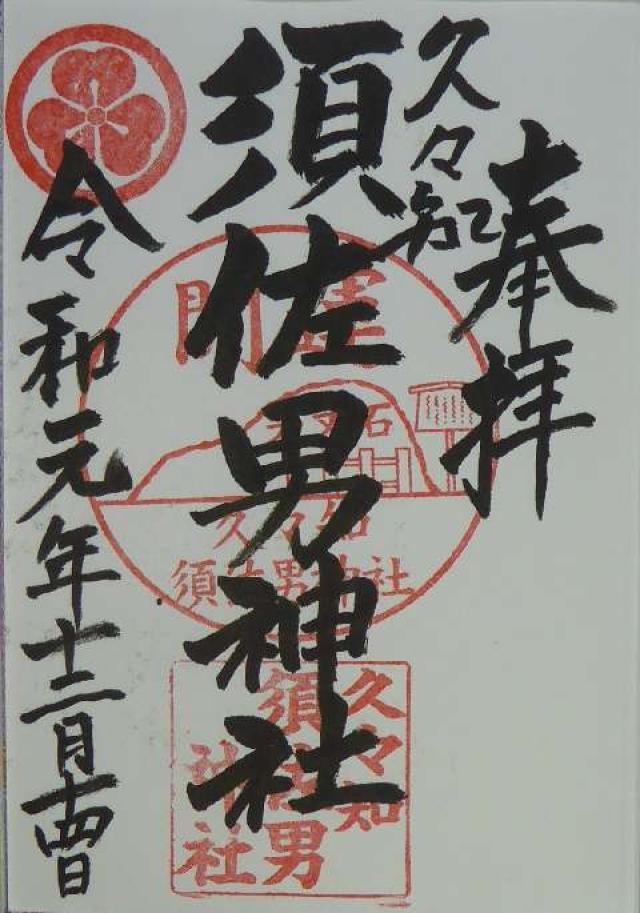 奉拝
久々知
須佐男神社
令和元年十二月十四日
開運
石
久々知
須佐男神社
久々知
須佐男
神社